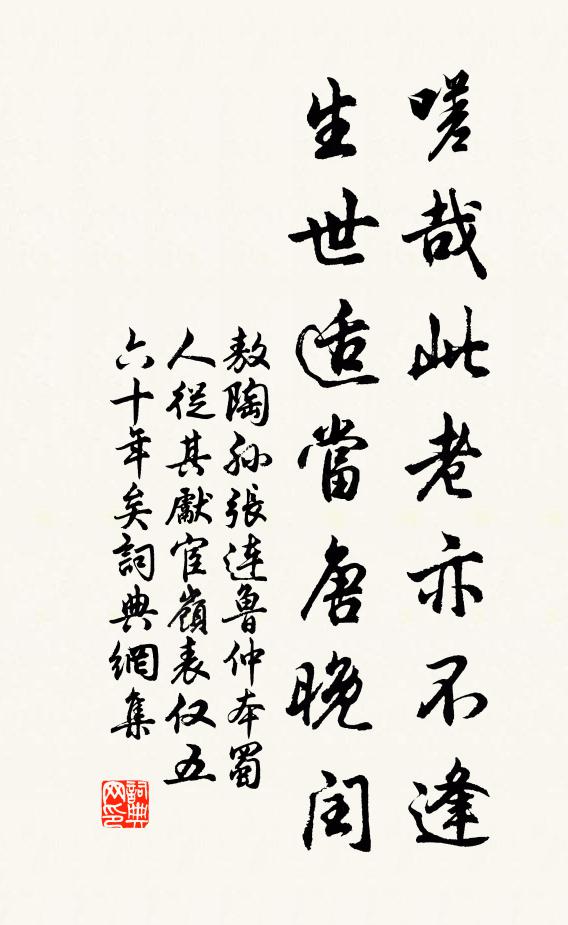 嗟哉此老亦不逢
生世适當唐晚閏
敖陶孙張連魯仲本蜀
人從其獻宦嶺表仅五
六十年矣詞典網集
詞典
网印